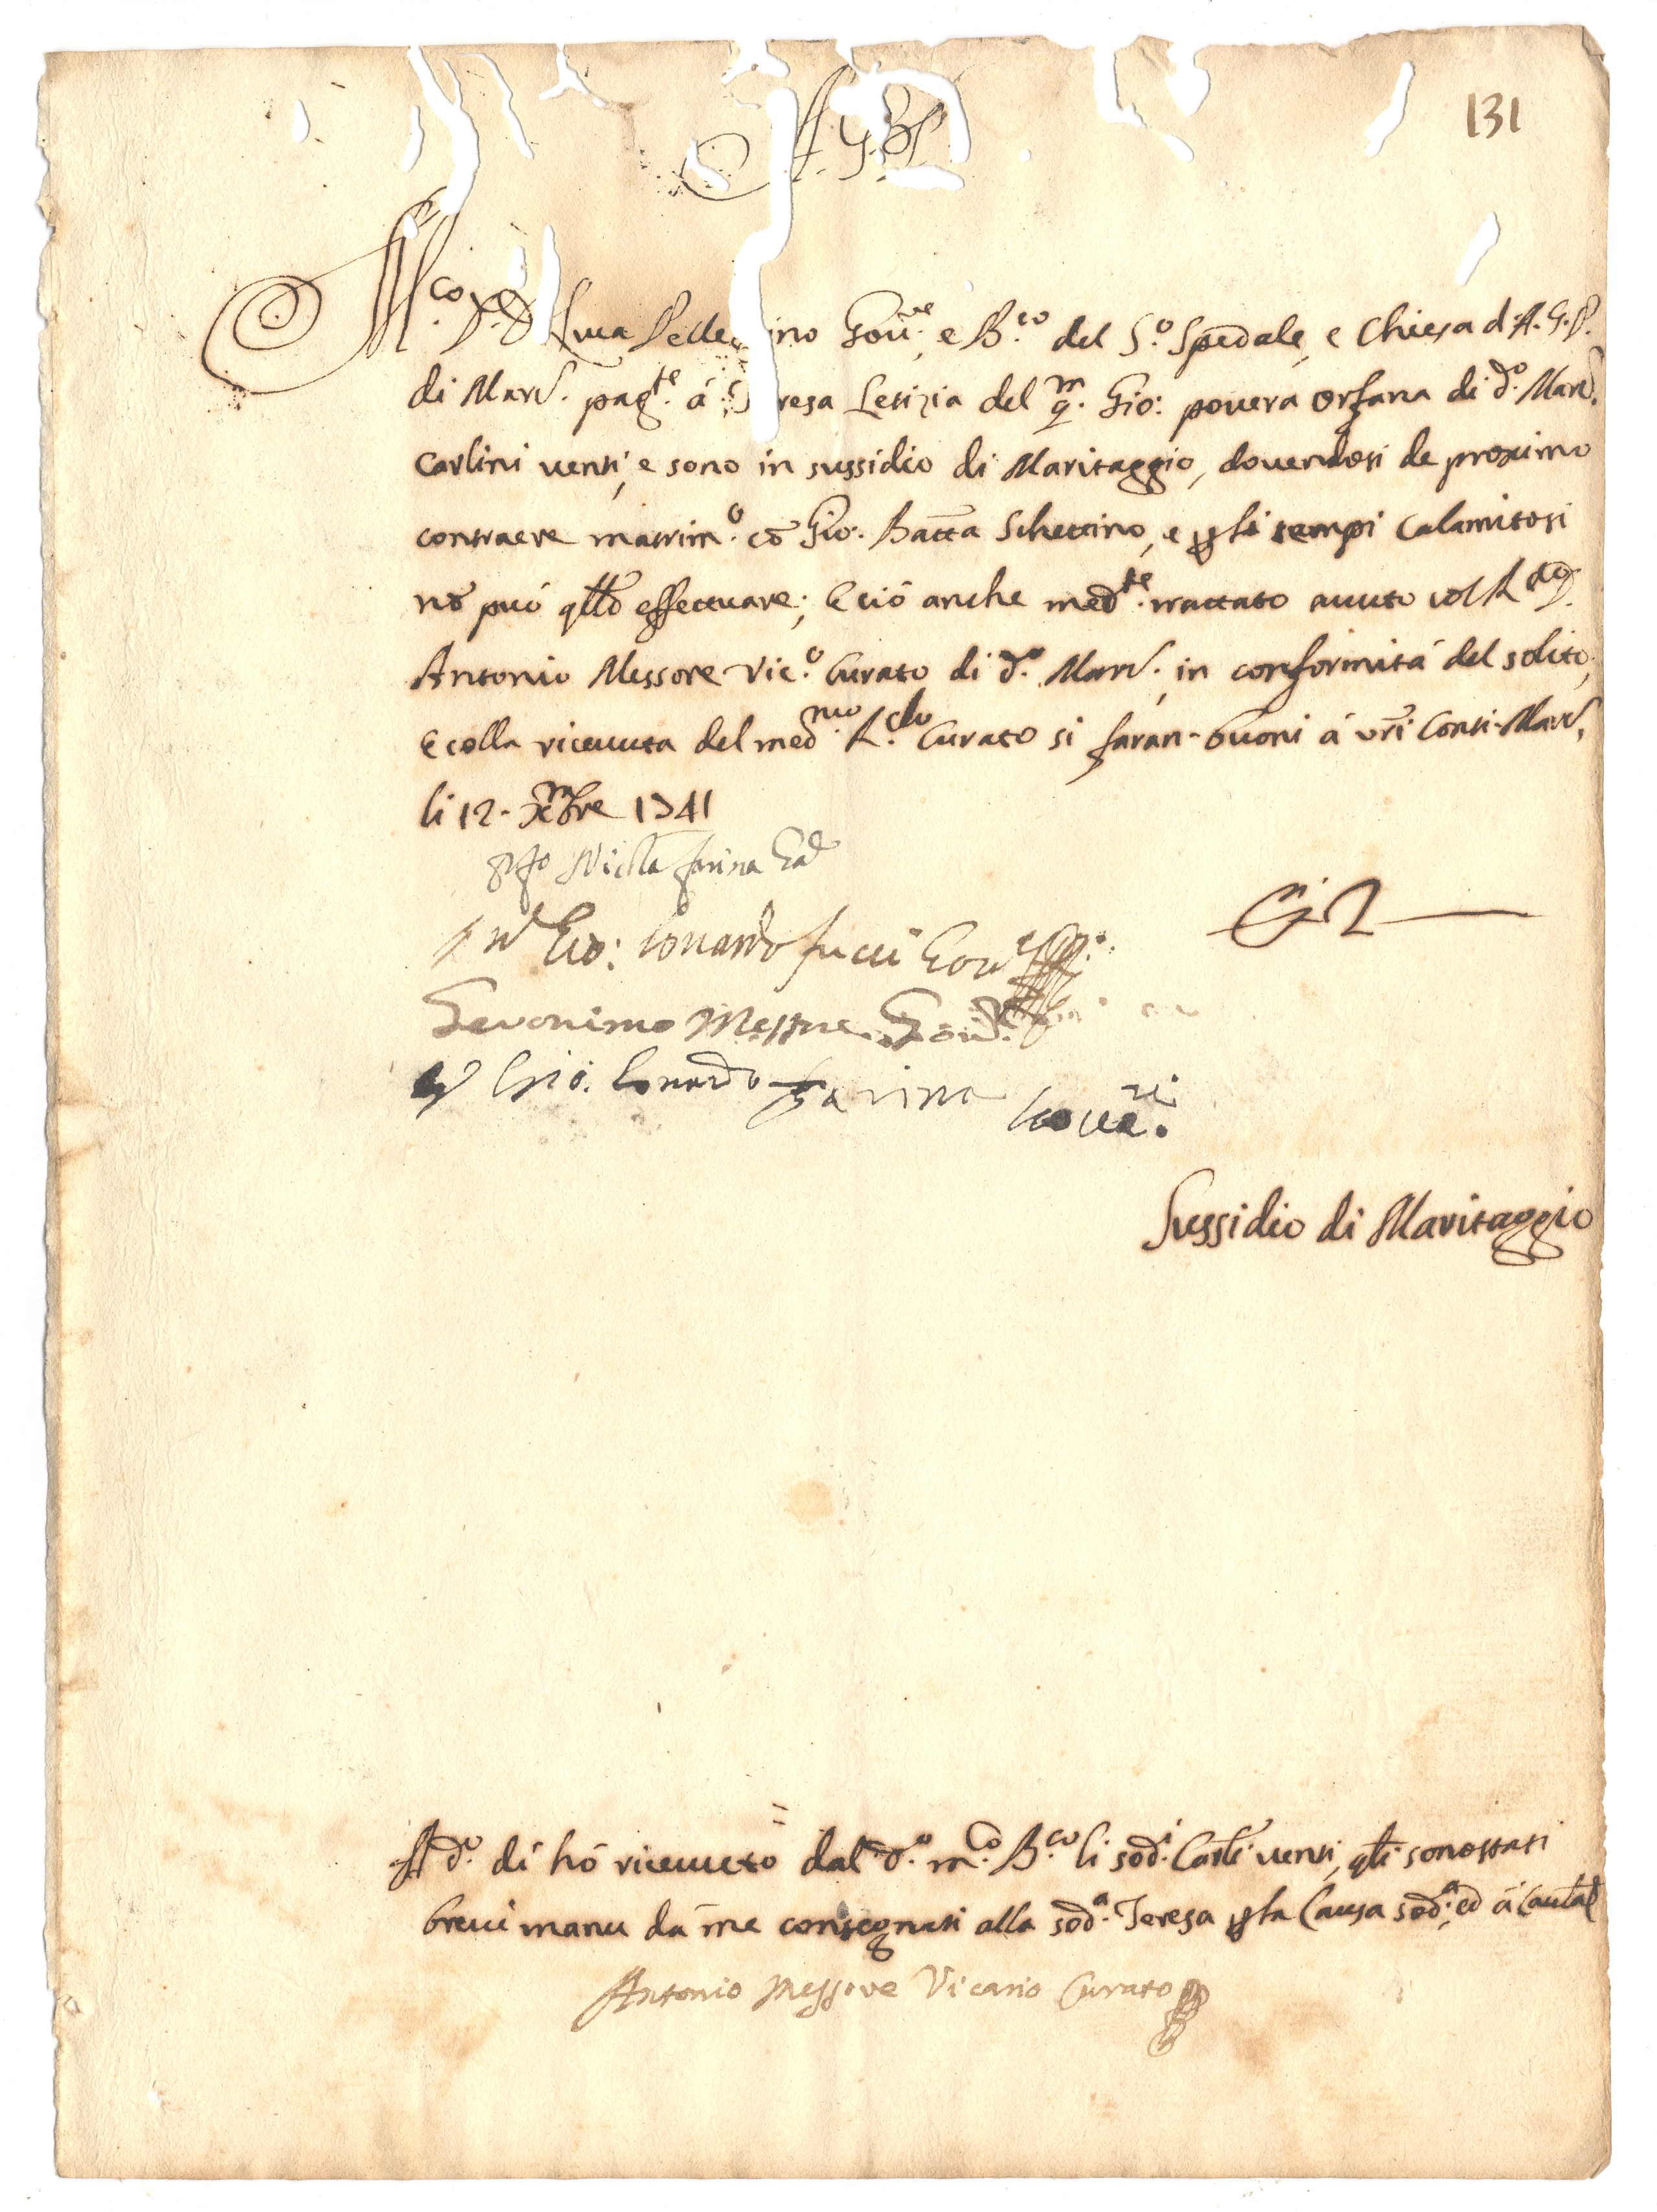 131
A. G. P.
M.co D.r D. Luca Pelle ino Gov.re, e B.co del S.o Spedale, e Chiesa d'A. G. P.
di Mard. pag.te á T resa Letizia del m q.m Gio: povera orfana di d.o Mard.
Carlini venti, e sono in sussidio di Maritaggio, dovendosi de proximo
contraere matrim.o cō Gio: Batta Schettino, e p li tempi calamitosi
nō può qllō effettuare; E ciò anche med.te trattato avuto col R.do D.
Antonio Messore Vic.o Curato di d.o Mard., in conformitá del solito,
E colla ricevuta del med.mo R.do Curato si faran- buoni á vrī Conti- Mard.
li 12- Xmbre 1741
Nicola farina
Gio: Lonardo fucci Gov.re
Geronimo Messore Gov.re
Gio: Lonardo Farina Gover.
C. 2 —
Sussidio di Maritaggio
A d.o dí hó ricevuto dal d.o m.co B.co li sod.i Carli venti, qli sono stati
brevi manu dá me consegnati alla sod.a Teresa p la Causa sod.a, ed á Cautal
Antonio Messore Vicario Curato